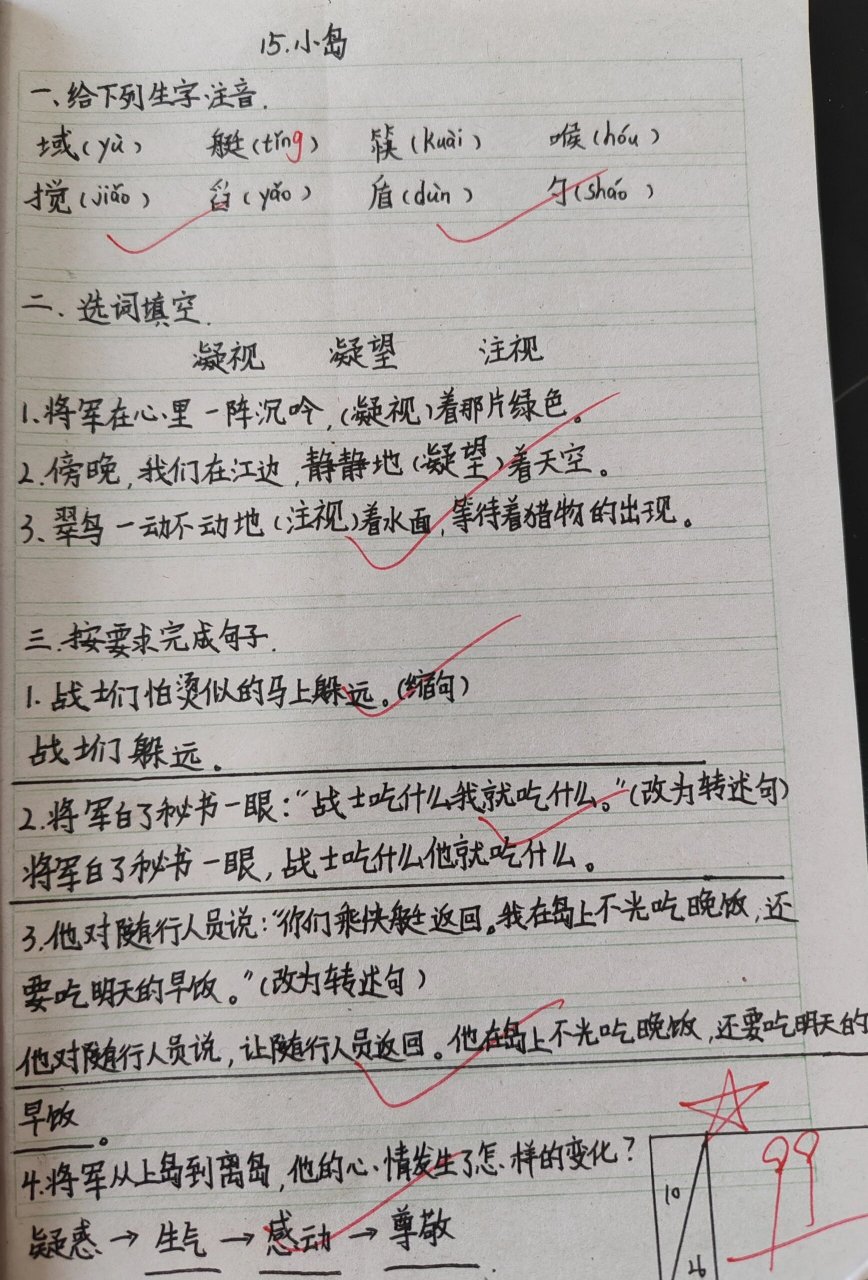 15.小岛
一、给下列生字注音.
域(yù) 艇(tǐng) 筷(kuài) 喉(hóu)
搅(jiǎo) 舀(yǎo) 盾(dùn) 勺(sháo)
二、选词填空.
凝视 凝望 注视
1.将军在心里一阵沉吟,(凝视)着那片绿色。
2.傍晚,我们在江边,静静地(凝望)着天空。
3、翠鸟一动不动地(注视)着水面,等待着猎物的出现。
三.按要求完成句子.
1.战士们怕烫似的马上躲远。(缩句)
战士们躲远。
2.将军白了秘书一眼:“战士吃什么我就吃什么。”(改为转述句)
将军白了秘书一眼,战士吃什么他就吃什么。
3.他对随行人员说:“你们乘快艇返回。我在岛上不光吃晚饭,还
要吃明天的早饭。”(改为转述句)
他对随行人员说,让随行人员返回。他在岛上不光吃晚饭,还要吃明天的
早饭。
4.将军从上岛到离岛,他的心情发生了怎样的变化?
疑惑→生气→感动→尊敬.
99
10
26